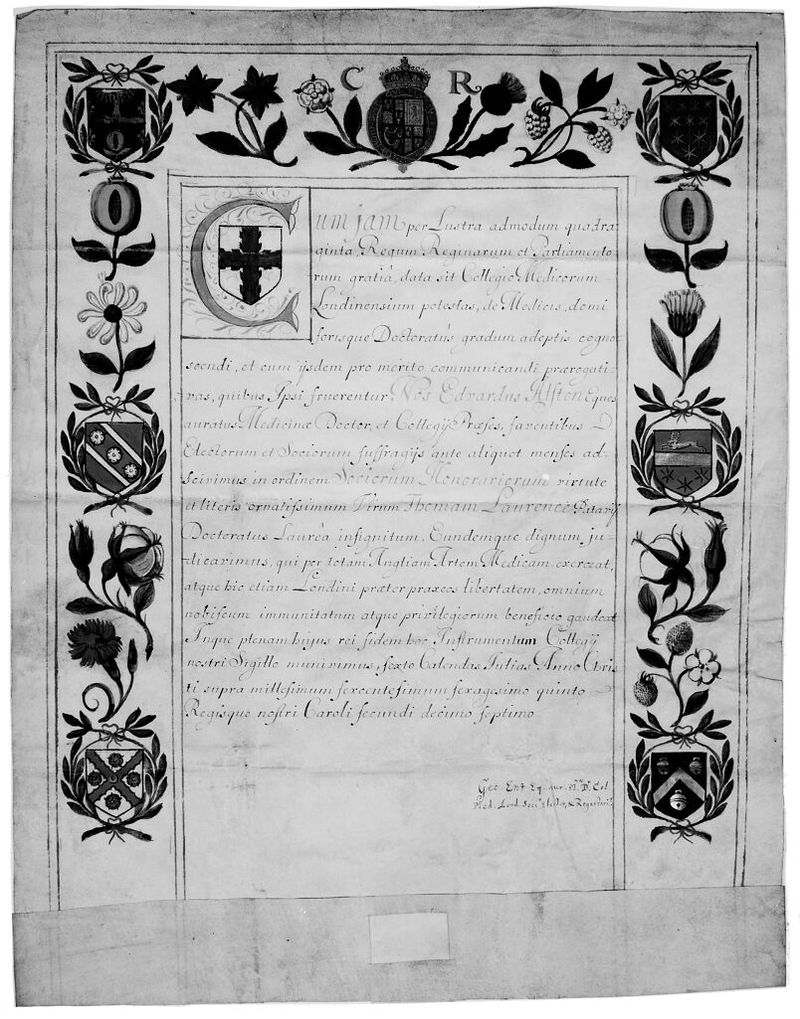 C R
Cum jam per Lustra admodum quadra-
ginta, Regum Reginarum et Parliamento-
rum gratiâ, data sit Collegio Medicorum
Londinensium potestas, de Medicis, domi
forisque Doctoratûs gradum adeptis cognos-
scendi, et cum ijsdem pro merito communicandi prærogati-
vas, quibus Ipsi fruerentur Nos Edvardus Alston Eques
auratus Medicinæ Doctor, et Collegij Præses, faventibus
Electorum et Sociorum suffragijs ante aliquot menses ad-
scivimus in ordinem Sociorum Honorariorum virtute
et literis ornatissimum Virum Thomam Laurence Patavij
Doctoratus Laureâ insignitum, Eundemque dignum ju-
dicavimus, qui per totam Angliam Artem Medicam exerceat,
atque hic etiam Londini præter praxeos libertatem, omnium
nobiscum immunitatum atque privilegiorum beneficio gaudeat
Inque plenam hujus rei fidem hoc Instrumentum Collegij
nostri Sigillo munivimus, sexto Calendas Julias Anno Chris
ti supra millesimum sexcentesimum sexagesimo quinto
Regisque nostri Caroli secundi decimo septimo
Geo. Ent Eq. aur. M. D. Col
Med. Lond. Soc. &